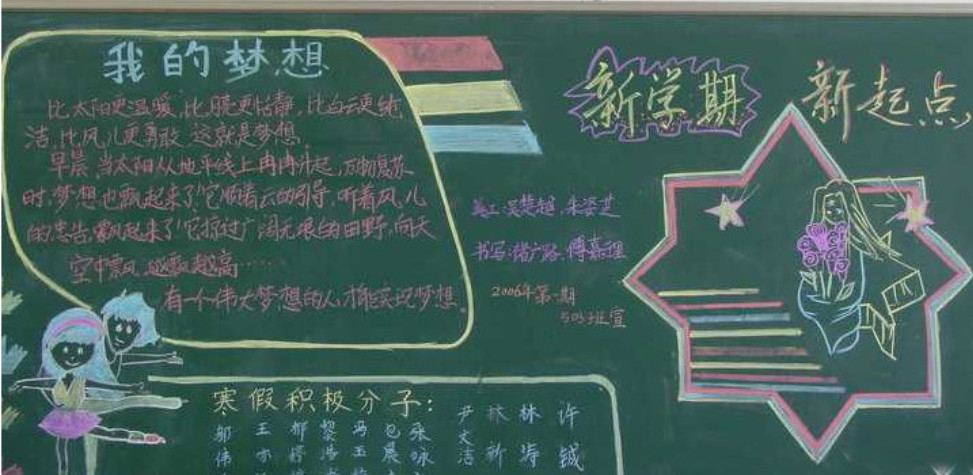 我的梦想
比太阳更温暖,比月亮更恬静,比白云更纯
洁,比风儿更勇敢,这就是梦想。
早晨,当太阳从地平线上冉冉升起,万物复苏
时,梦想也飘起来了!它顺着云的引导,听着风儿
的忠告,飘起来了!它掠过广阔无垠的田野,向天
空中飘,越飘越高……
有一个伟大梦想的人,才能实现梦想
新学期 新起点
美工:吴楚越、朱姿芝
书写:褚广路、傅嘉理
2006年第一期
503班宣
寒假积极分子:
邹 王 郁 黎 冯 包 张 尹 林 林 许
伟 亦 婷 浩 玉 晨 咏 文 新 涛 铖
洁